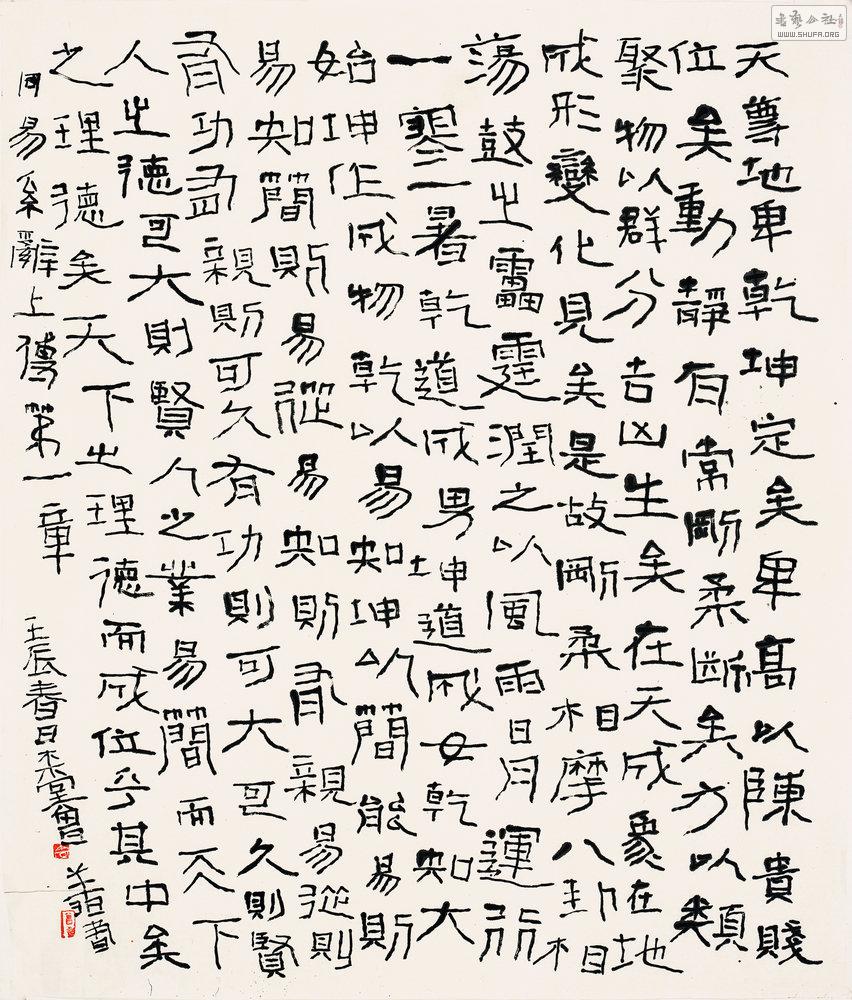 天尊地卑乾坤定矣卑高以陳貴賤
位矣動靜有常剛柔斷矣方以類
聚物以群分吉凶生矣在天成象在地
成形變化見矣是故剛柔相摩八卦相
蕩鼓之靁霆潤之以風雨日月運行
一寒一暑乾道成男坤道成女乾知大
始坤作成物乾以易知坤以簡能易則
易知簡則易從易知則有親易從則
有功有親則可久有功則可大可久則賢
人之德可大則賢人之業易簡而天下
之理德矣天下之理德而成位乎其中矣
周易系辭上傳第一章
壬辰春日
書藝公社
WWW.SHUFA.ORG